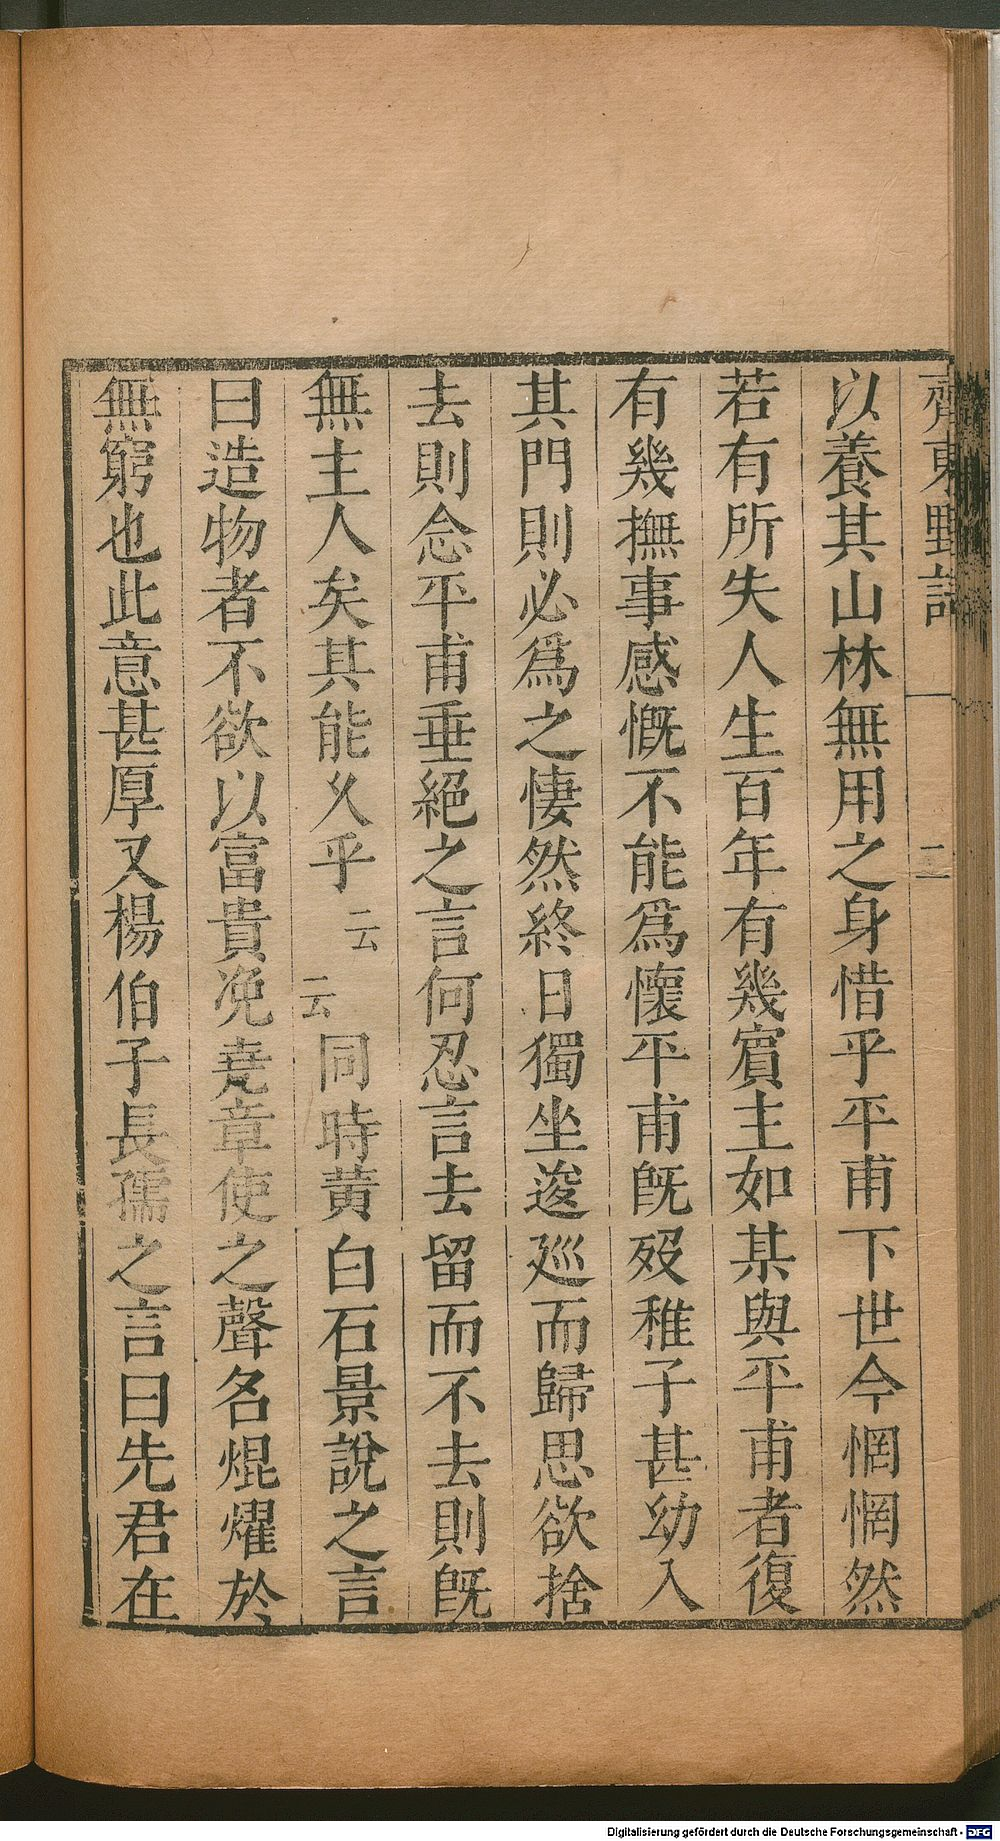 齊東野語
二
以養其山林無用之身惜乎平甫下世今惘惘然
若有所失人生百年有幾賓主如某與平甫者復
有幾撫事感慨不能爲懷平甫旣歿稚子甚幼入
其門則必爲之悽然終日獨坐逡廵而歸思欲捨
去則念平甫垂絕之言何忍言去留而不去則旣
無主人矣其能乆乎云云同時黃白石景說之言
曰造物者不欲以富貴浼堯章使之聲名焜燿於
無窮也此意甚厚又楊伯子長孺之言曰先君在
Digitalisierung gefördert durch die Deutsche Forschungsgemeinschaft - DFG